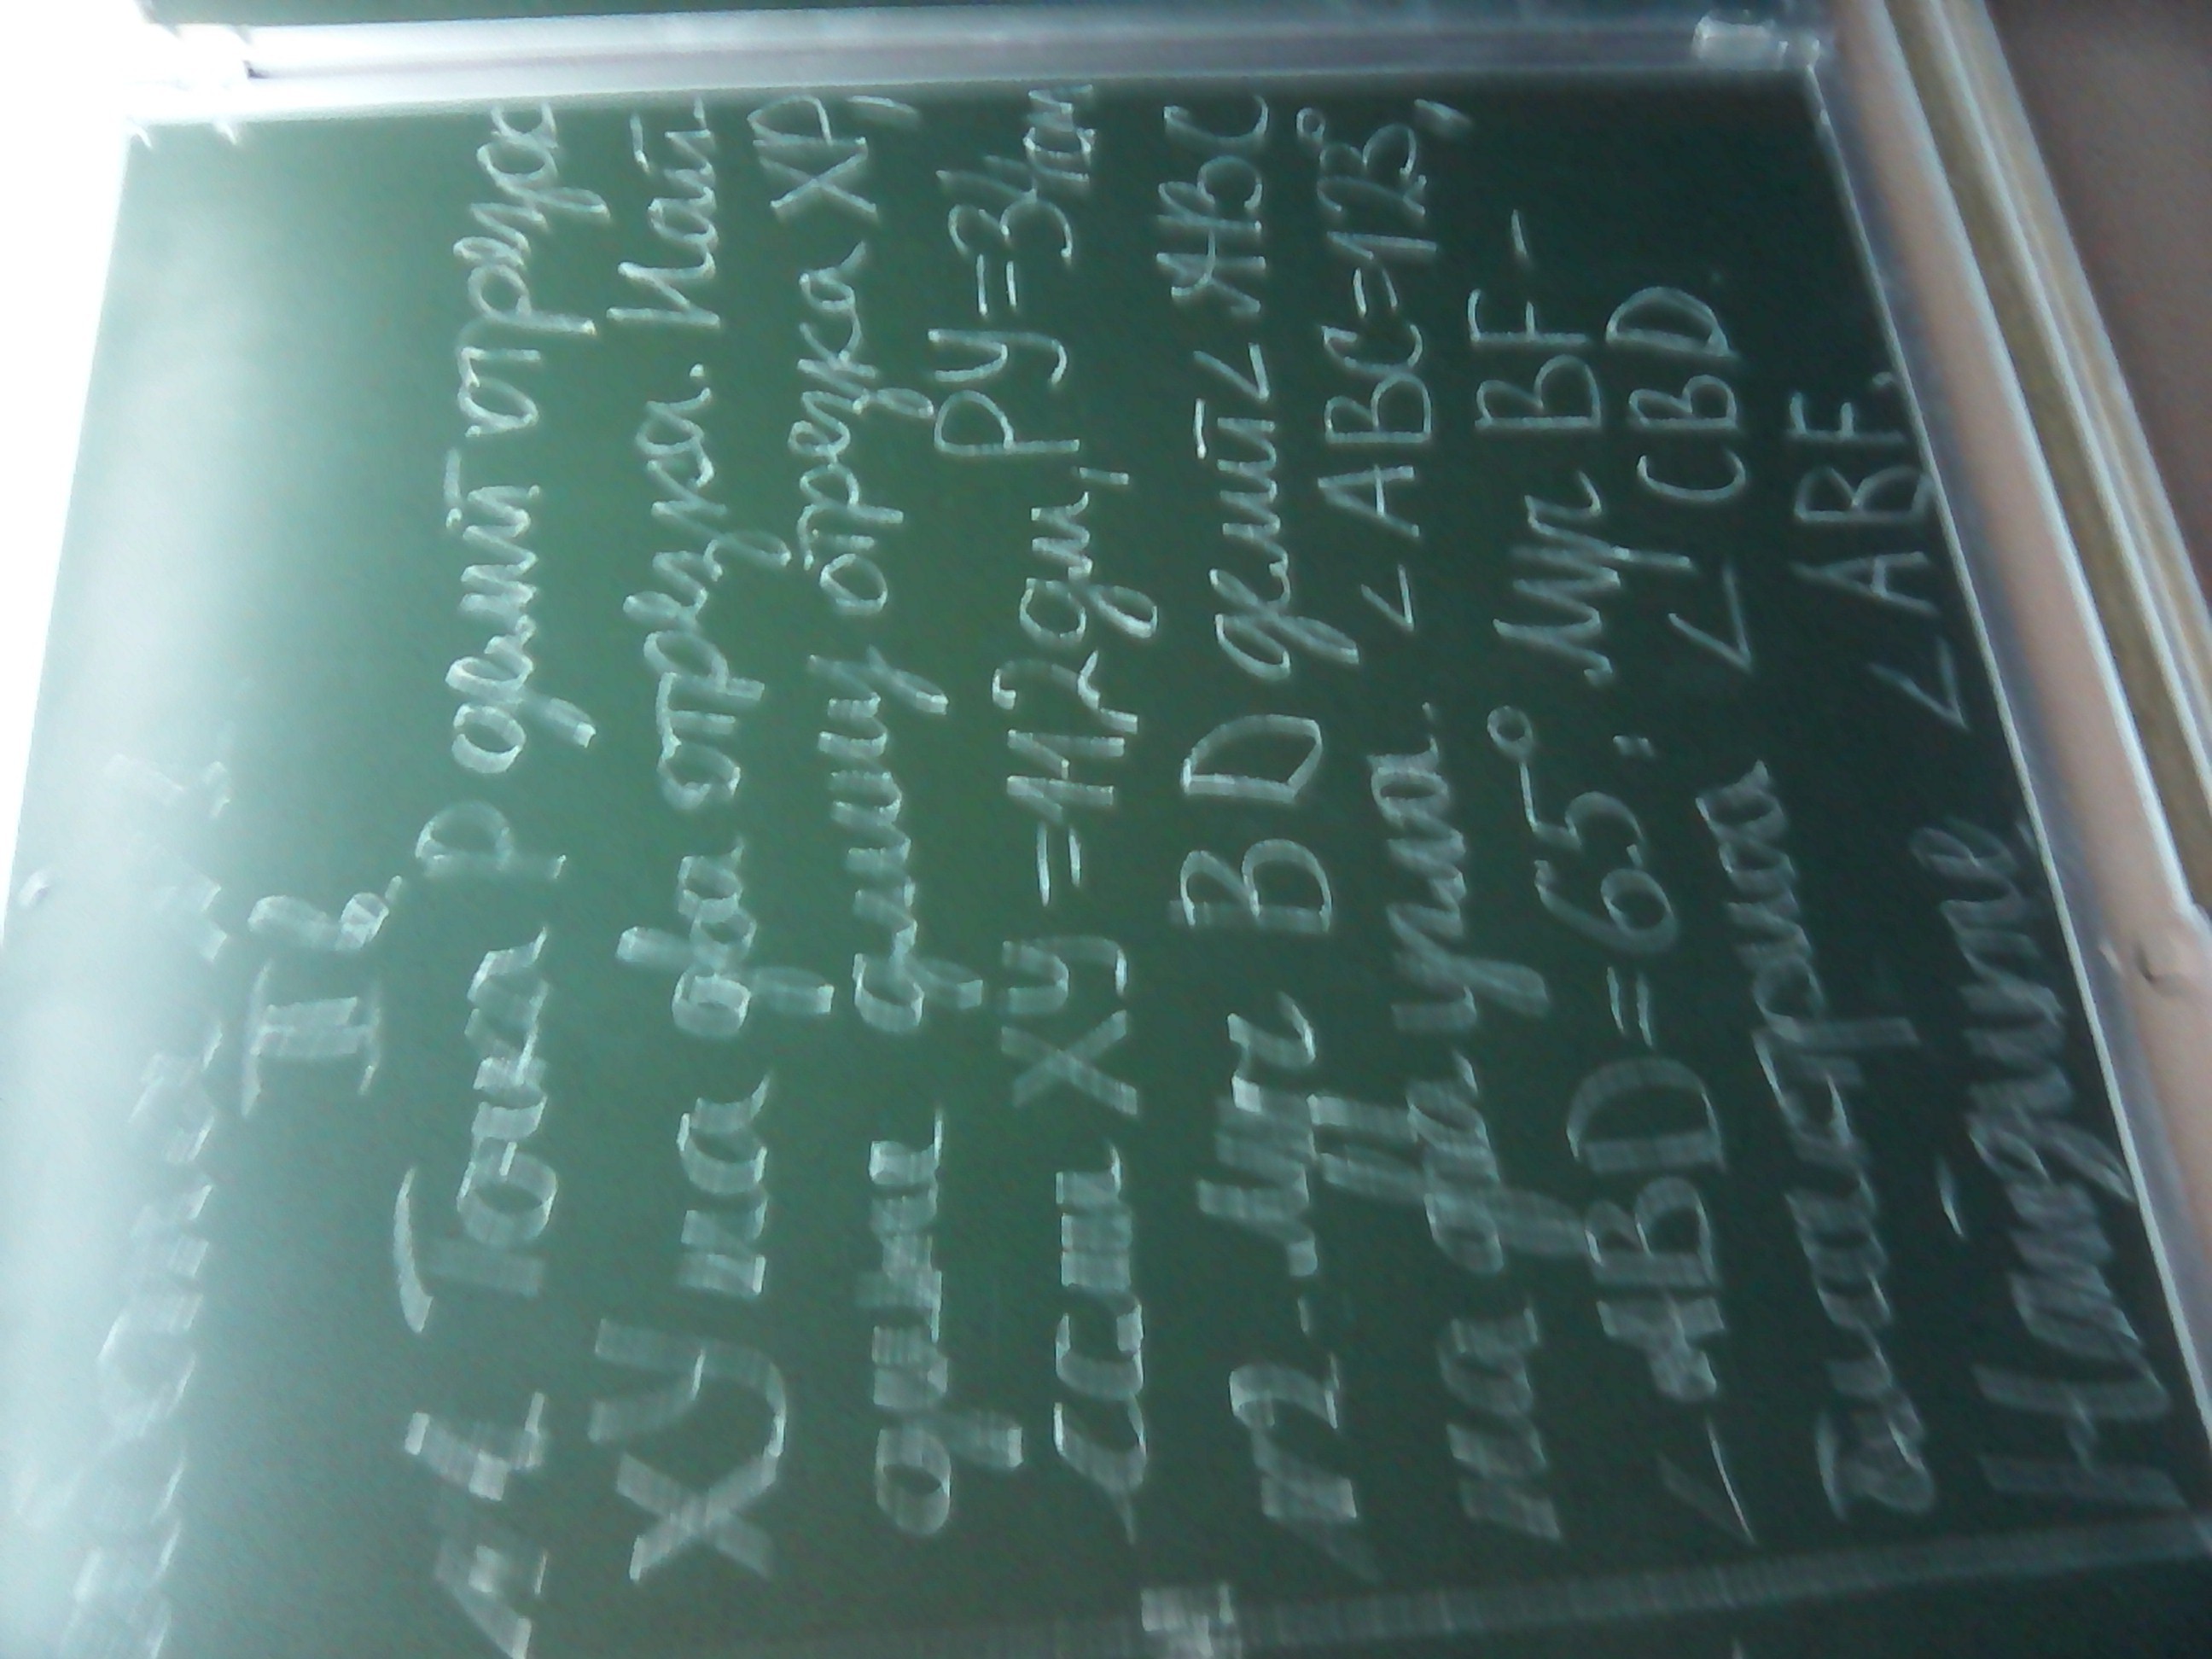 II в.
№1 Точка P делит отрезок
XY на два отрезка. Най-
дите длину отрезка XP,
если XY = 1,12 дм, PY = 34см
№2. Луч BD делит < ABC
на два угла. < ABC = 123°,
< ABD = 65°. Луч BF -
биссектриса < CBD
Найдите < ABF.